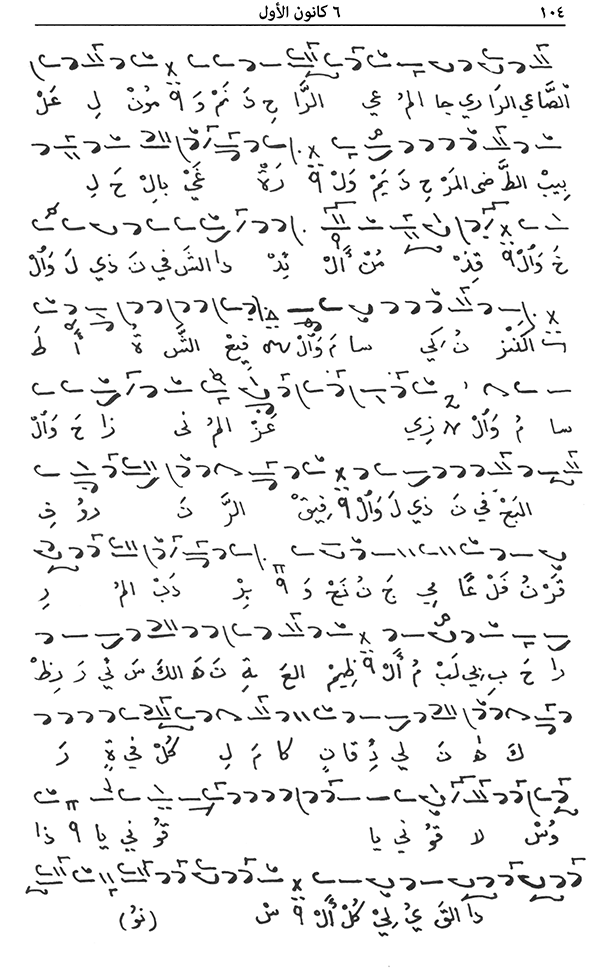 ١٠٤ ٦ كانون الأول
الصَّاعي الرَاري جا المُ عي الرَّا حِ دَ نَمْ وَ ٩ مُونْ لِ عَلْ
بِيبْ الطَّ ضى المَرْ حِ دَ يَمْ وَلْ ٩ رَةْ غَيْ بالِ حَ لِ
خَ وَالْ ٩ قِذْ مُنْ أَلْ ئِدْ دا الشَ في نَ ذي لَ وَالْ
تْ الكَنْزْ نُ كي سا مَ وَالْ فيعْ الشَّ ةُ أَ طَ
سا مُ وَالْ زي عَزْ المُ نى زا حَ وَالْ
البَحْ في نَ ذي لَ وَالْ ٩ فيقْ الرَّ نَ دوُ فِ
قَرْ نُ فَلْ عًا مي جَ نُ نَحْ وَ ٩ بِرْ دَبْ المُ رِ
را حَ بِ بي لَبْ مُ أَلْ ٩ ظيمْ العَ ةِ نَ هَ الكَ سَ ئي رَ رِظْ
كَ هْ نَ لي ذِ قانِ كا مَ لِ كُلْ في ةٍ رَ
وُسْ لا قوُ ني يا قوُ ني يا ٩ ذا
دا القَ يُ لِيْ كُلْ أَلْ ٩ سْ (نوُ)